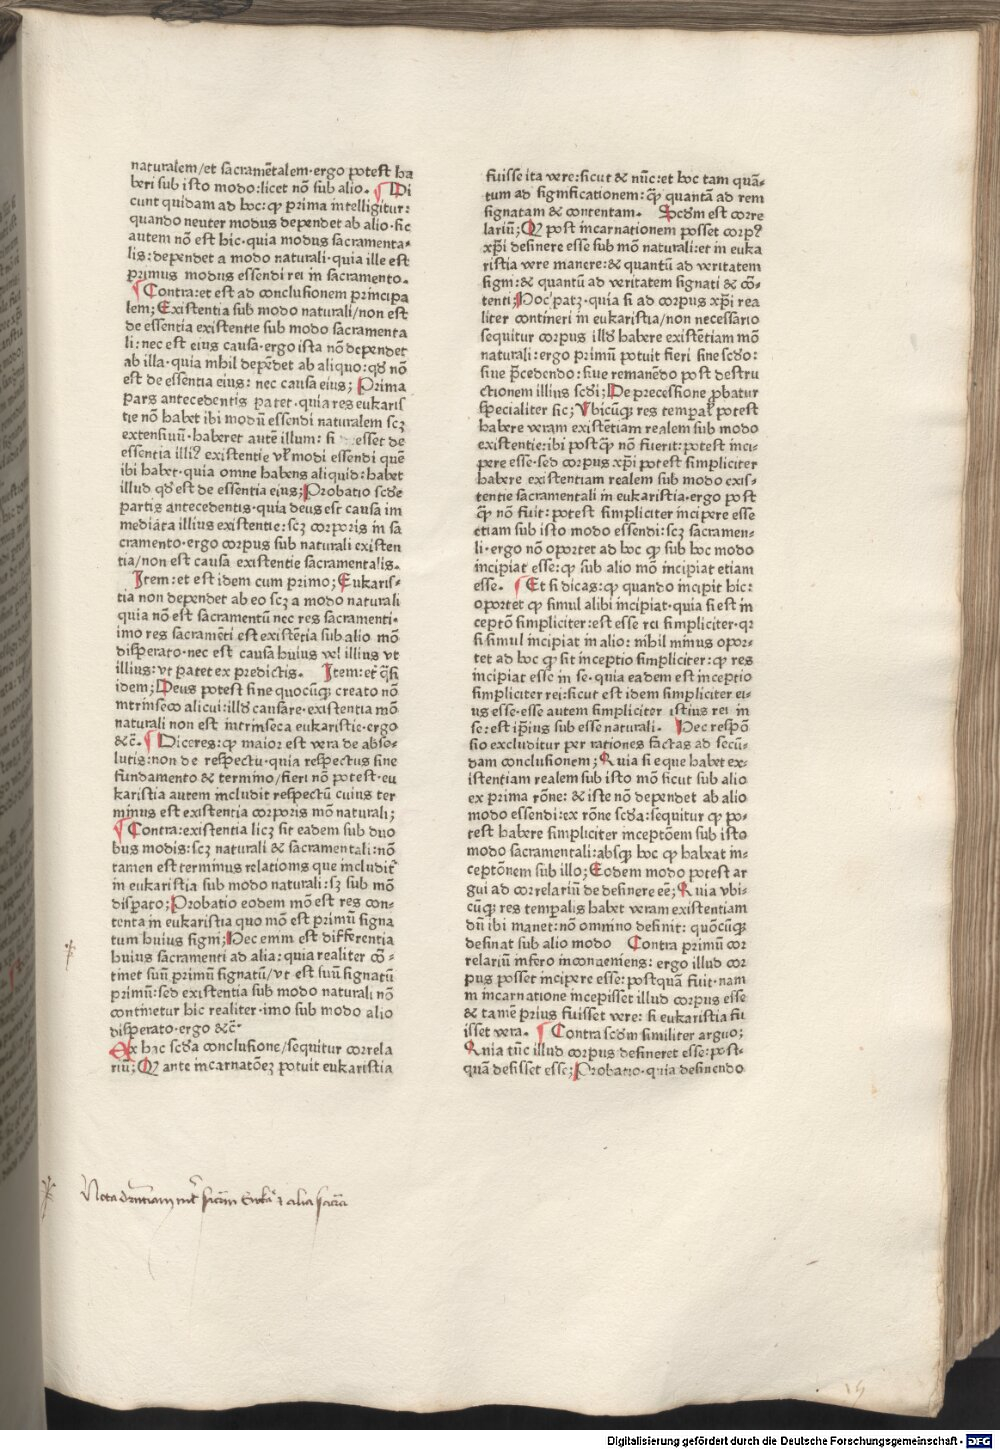 naturalem/et sacramētalem·ergo potest ha
beri sub isto modo:licet nō sub alio. ¶ Di
cunt quidam ad hoc:ꝙ prima intelligitur:
quando neuter modus dependet ab alio·sic
autem nō est hic·quia modus sacramenta-
lis:dependet a modo naturali·quia ille est
primus modus essendi rei in sacramento.
¶ Contra:et est ad conclusionem principa
lem; Existentia sub modo naturali/non est
de essentia existentie sub modo sacramenta
li:nec est eius causa·ergo ista nō dependet
ab illa·quia nihil depēdet ab aliquo:qđ nō
est de essentia eius: nec causa eius; Prima
pars antecedentis patet·quia res eukaris
tie nō habet ibi modū essendi naturalem scꝫ
extensiuū·haberet autē illum: si esset de
essentia illiꝰ existentie vł modi essendi quē
ibi habet·quia omne habens aliquid:habet
illud qđ est de essentia eius; Probatio scđe
partis antecedentis·quia deus est causa im
mediata illius existentie:scꝫ corporis in sa
cramento·ergo corpus sub naturali existen
tia/non est causa existentie sacramentalis.
Item:et est idem cum primo; Eukaris-
tia non dependet ab eo scꝫ a modo naturali
quia nō est sacramentū nec res sacramenti·
imo res sacramēti est existētia sub alio mō
disperato·nec est causa huius vel illius vt
illius:vt patet ex predictis. Item:et q̄si
idem; Deus potest sine quocūqꝫ creato nō
intrinseco alicui:illđ causare·existentia mō
naturali non est intrinseca eukaristie·ergo
&c̄. ¶ Diceres:ꝙ maior est vera de abso-
lutis:non de respectu·quia respectus sine
fundamento & termino/fieri nō potest·eu
karistia autem includit respectū cuius ter
minus est existentia corporis mō naturali;
¶ Contra:existentia licꝫ sit eadem sub duo
bus modis:scꝫ naturali & sacramentali:nō
tamen est terminus relationis que includit̄
in eukaristia sub modo naturali:sꝫ sub mō
disparato; Probatio eodem mō est res con-
tenta in eukaristia quo mō est primū signa
tum huius signi; Hec enim est differentia
huius sacramenti ad alia:quia realiter cō-
tinet suū primū signatū/vt est suū signatū
primū:sed existentia sub modo naturali nō
continetur hic realiter·imo sub modo alio
disperato·ergo &c̄·
Ex hac scđa conclusione/sequitur correla
riū; Qꝫ ante incarnatōeꝫ potuit eukaristia
fuisse ita vere:sicut & nūc:et hoc tam quā-
tum ad significationem:ꝙ̄ quantā ad rem
signatam & contentam. Scđm est corre
lariū; Qꝫ post incarnationem posset corpꝰ
xp̄i desinere esse sub mō naturali:et in euka
ristia vere manere:& quantū ad veritatem
signi:& quantū ad veritatem signati & cō-
tenti; Hoc patꝫ·quia si ad corpus xp̄i rea
liter contineri in eukaristia/non necessario
sequitur corpus illđ habere existētiam mō
naturali:ergo primū potuit fieri sine scđo:
siue p̄cedendo:siue remanēdo post destru
ctionem illius scđi; De precessione ꝓbatur
specialiter sic; Vbicūqꝫ res temꝑał potest
habere veram existētiam realem sub modo
existentie:ibi postꝙ̄ nō fuerit:potest inci-
pere esse·sed corpus xp̄i potest simpliciter
habere existentiam realem sub modo exis-
tentie sacramentali in eukaristia·ergo post
ꝙ̄ nō fuit:potest simpliciter incipere esse
etiam sub isto modo essendi:scꝫ sacramen-
li·ergo nō oportet ad hoc ꝙ sub hoc modo
incipiat esse:ꝙ sub alio mō incipiat etiam
esse. ¶ Et si dicas:ꝙ quando incipit hic:
oportet ꝙ simul alibi incipiat·quia si est in
ceptō simpliciter:est esse rei simpliciter·qꝛ
si simul incipiat in alio: nihil minus opor-
tet ad hoc ꝙ sit inceptio simpliciter:ꝙ res
incipiat esse in se·quia eadem est inceptio
simpliciter rei:sicut est idem simpliciter ei-
us esse·esse autem simpliciter istius rei in
se:est ip̄ius sub esse naturali. Hec respō
sio excluditur per rationes factas ad secū-
dam conclusionem; Quia si eque habet ex-
istentiam realem sub isto mō sicut sub alio
ex prima rōne: & iste nō dependet ab alio
modo essendi:ex rōne scđa:sequitur ꝙ po-
test habere simpliciter inceptōem sub isto
modo sacramentali:absqꝫ hoc ꝙ habeat in-
ceptōnem sub illo; Eodem modo potest ar
gui ad correlariū de desinere eē; Quia vbi-
cūqꝫ res temꝑalis habet veram existentiam
dū ibi manet:nō omnino desinit: quōcūqꝫ
desinat sub alio modo Contra primū cor
relariū infero inconueniens: ergo illud cor
pus posset incipere esse:postquā fuit·nam
in incarnatione incepisset illud corpus esse
& tamē prius fuisset vere: si eukaristia fu
isset vera. ¶ Contra scđm similiter arguo;
Quia tūc illud corpus desineret esse:post-
quā desisset esse; Probatio·quia desinendo
Digitalisierung gefördert durch die Deutsche Forschungsgemeinschaft - DFG